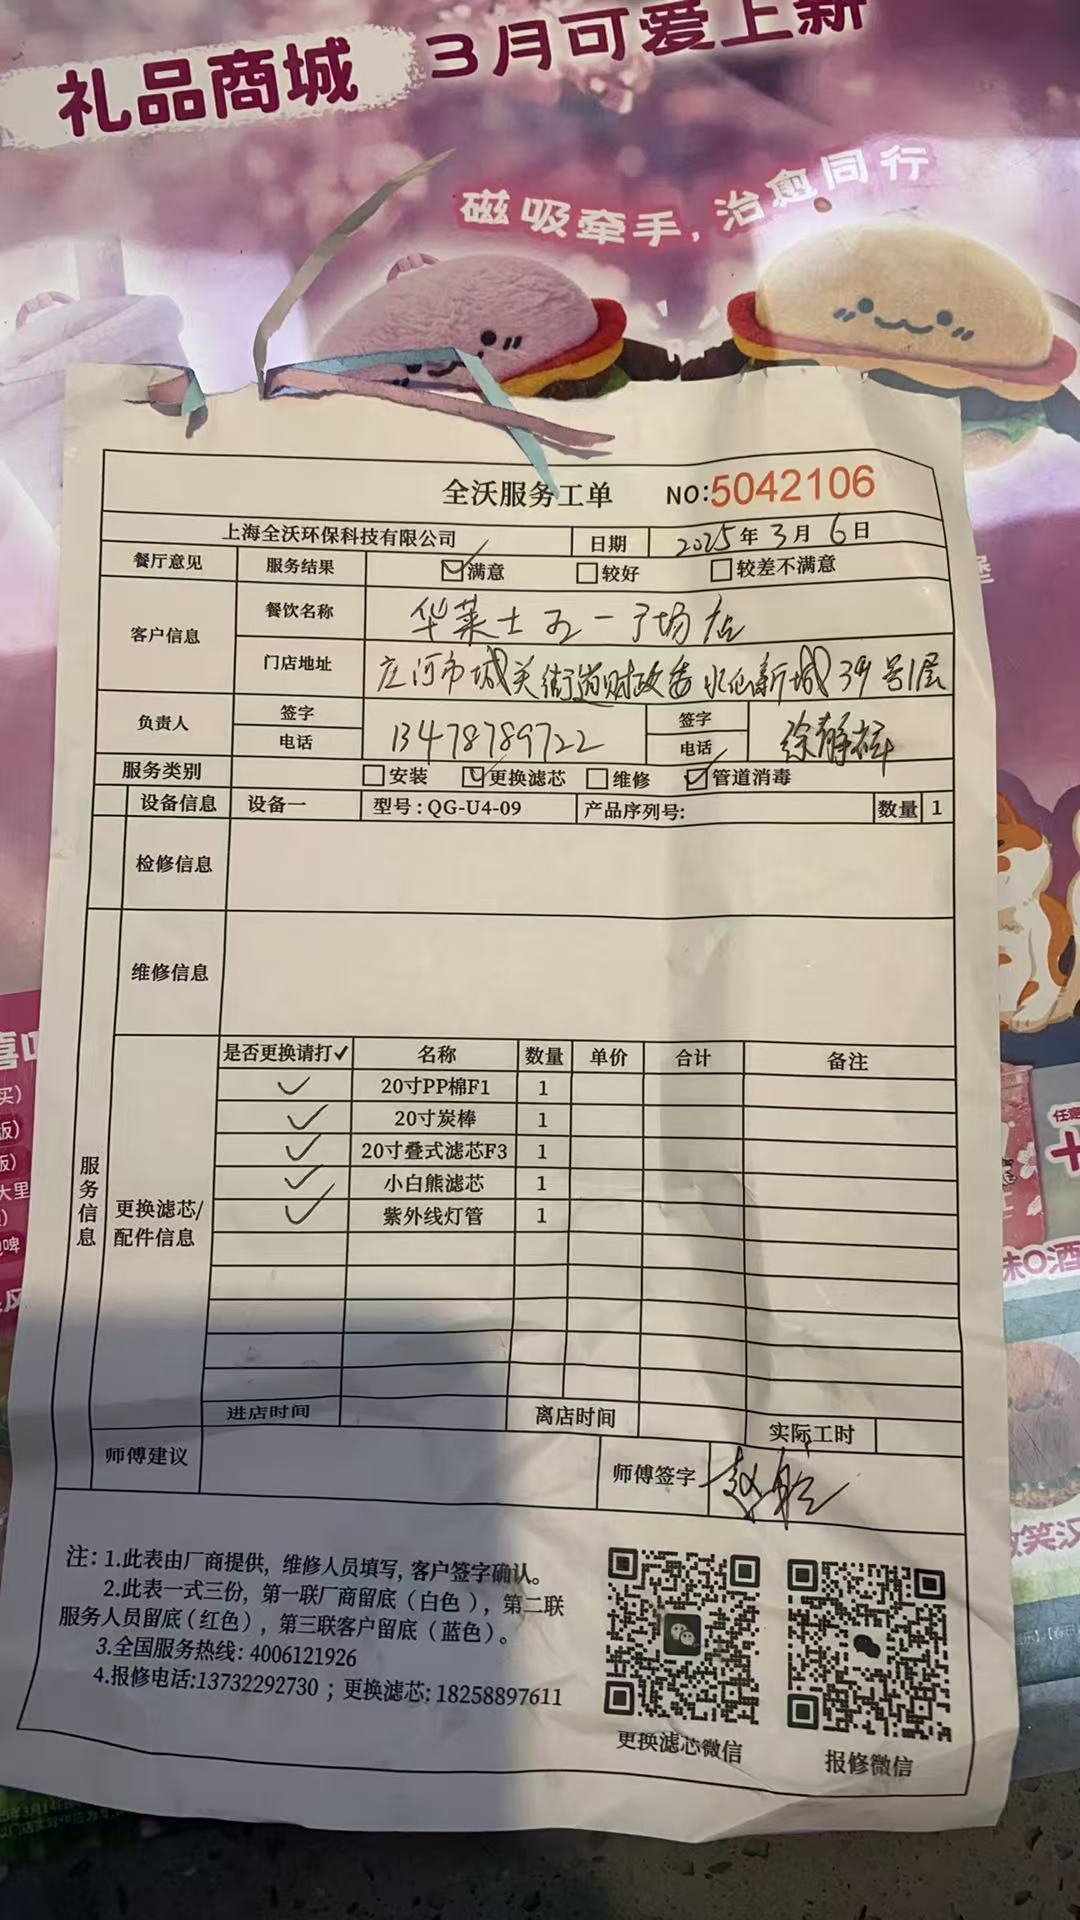 礼品商城 3月可爱上新
磁吸牵手,治愈同行
全沃服务工单 NO:5042106
上海全沃环保科技有限公司 日期 2025年3月6日
餐厅意见 服务结果 ☑满意 □较好 □较差不满意
客户信息 餐饮名称 华莱士五一广场店
门店地址 庄河市城关街道财政委水仙新城39号1层
负责人 签字 签字
电话 13478789722 电话
服务类别 □安装 ☑更换滤芯 □维修 ☑管道消毒
设备信息 设备一 型号:QG-U4-09 产品序列号: 数量 1
检修信息
维修信息
服务信息
更换滤芯/配件信息
是否更换请打✓ 名称 数量 单价 合计 备注
✓ 20寸PP棉F1 1
✓ 20寸炭棒 1
✓ 20寸叠式滤芯F3 1
✓ 小白熊滤芯 1
✓ 紫外线灯管 1
进店时间 离店时间 实际工时
师傅建议 师傅签字
注:1.此表由厂商提供,维修人员填写,客户签字确认。
2.此表一式三份,第一联厂商留底(白色),第二联
服务人员留底(红色),第三联客户留底(蓝色)。
3.全国服务热线:4006121926
4.报修电话:13732292730;更换滤芯:18258897611
更换滤芯微信 报修微信